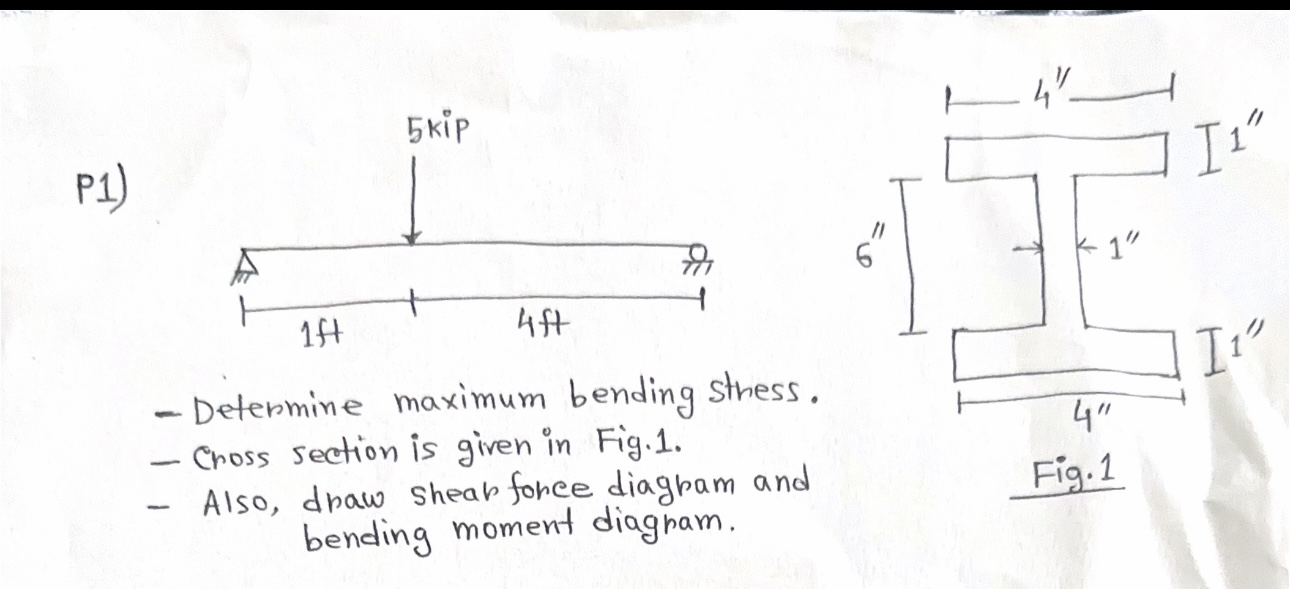 P1)
5kip
1ft
4ft
- Determine maximum bending stress.
- Cross section is given in Fig.1.
- Also, draw shear force diagram and
bending moment diagram.
4"
1"
6"
1"
1"
4"
Fig.1